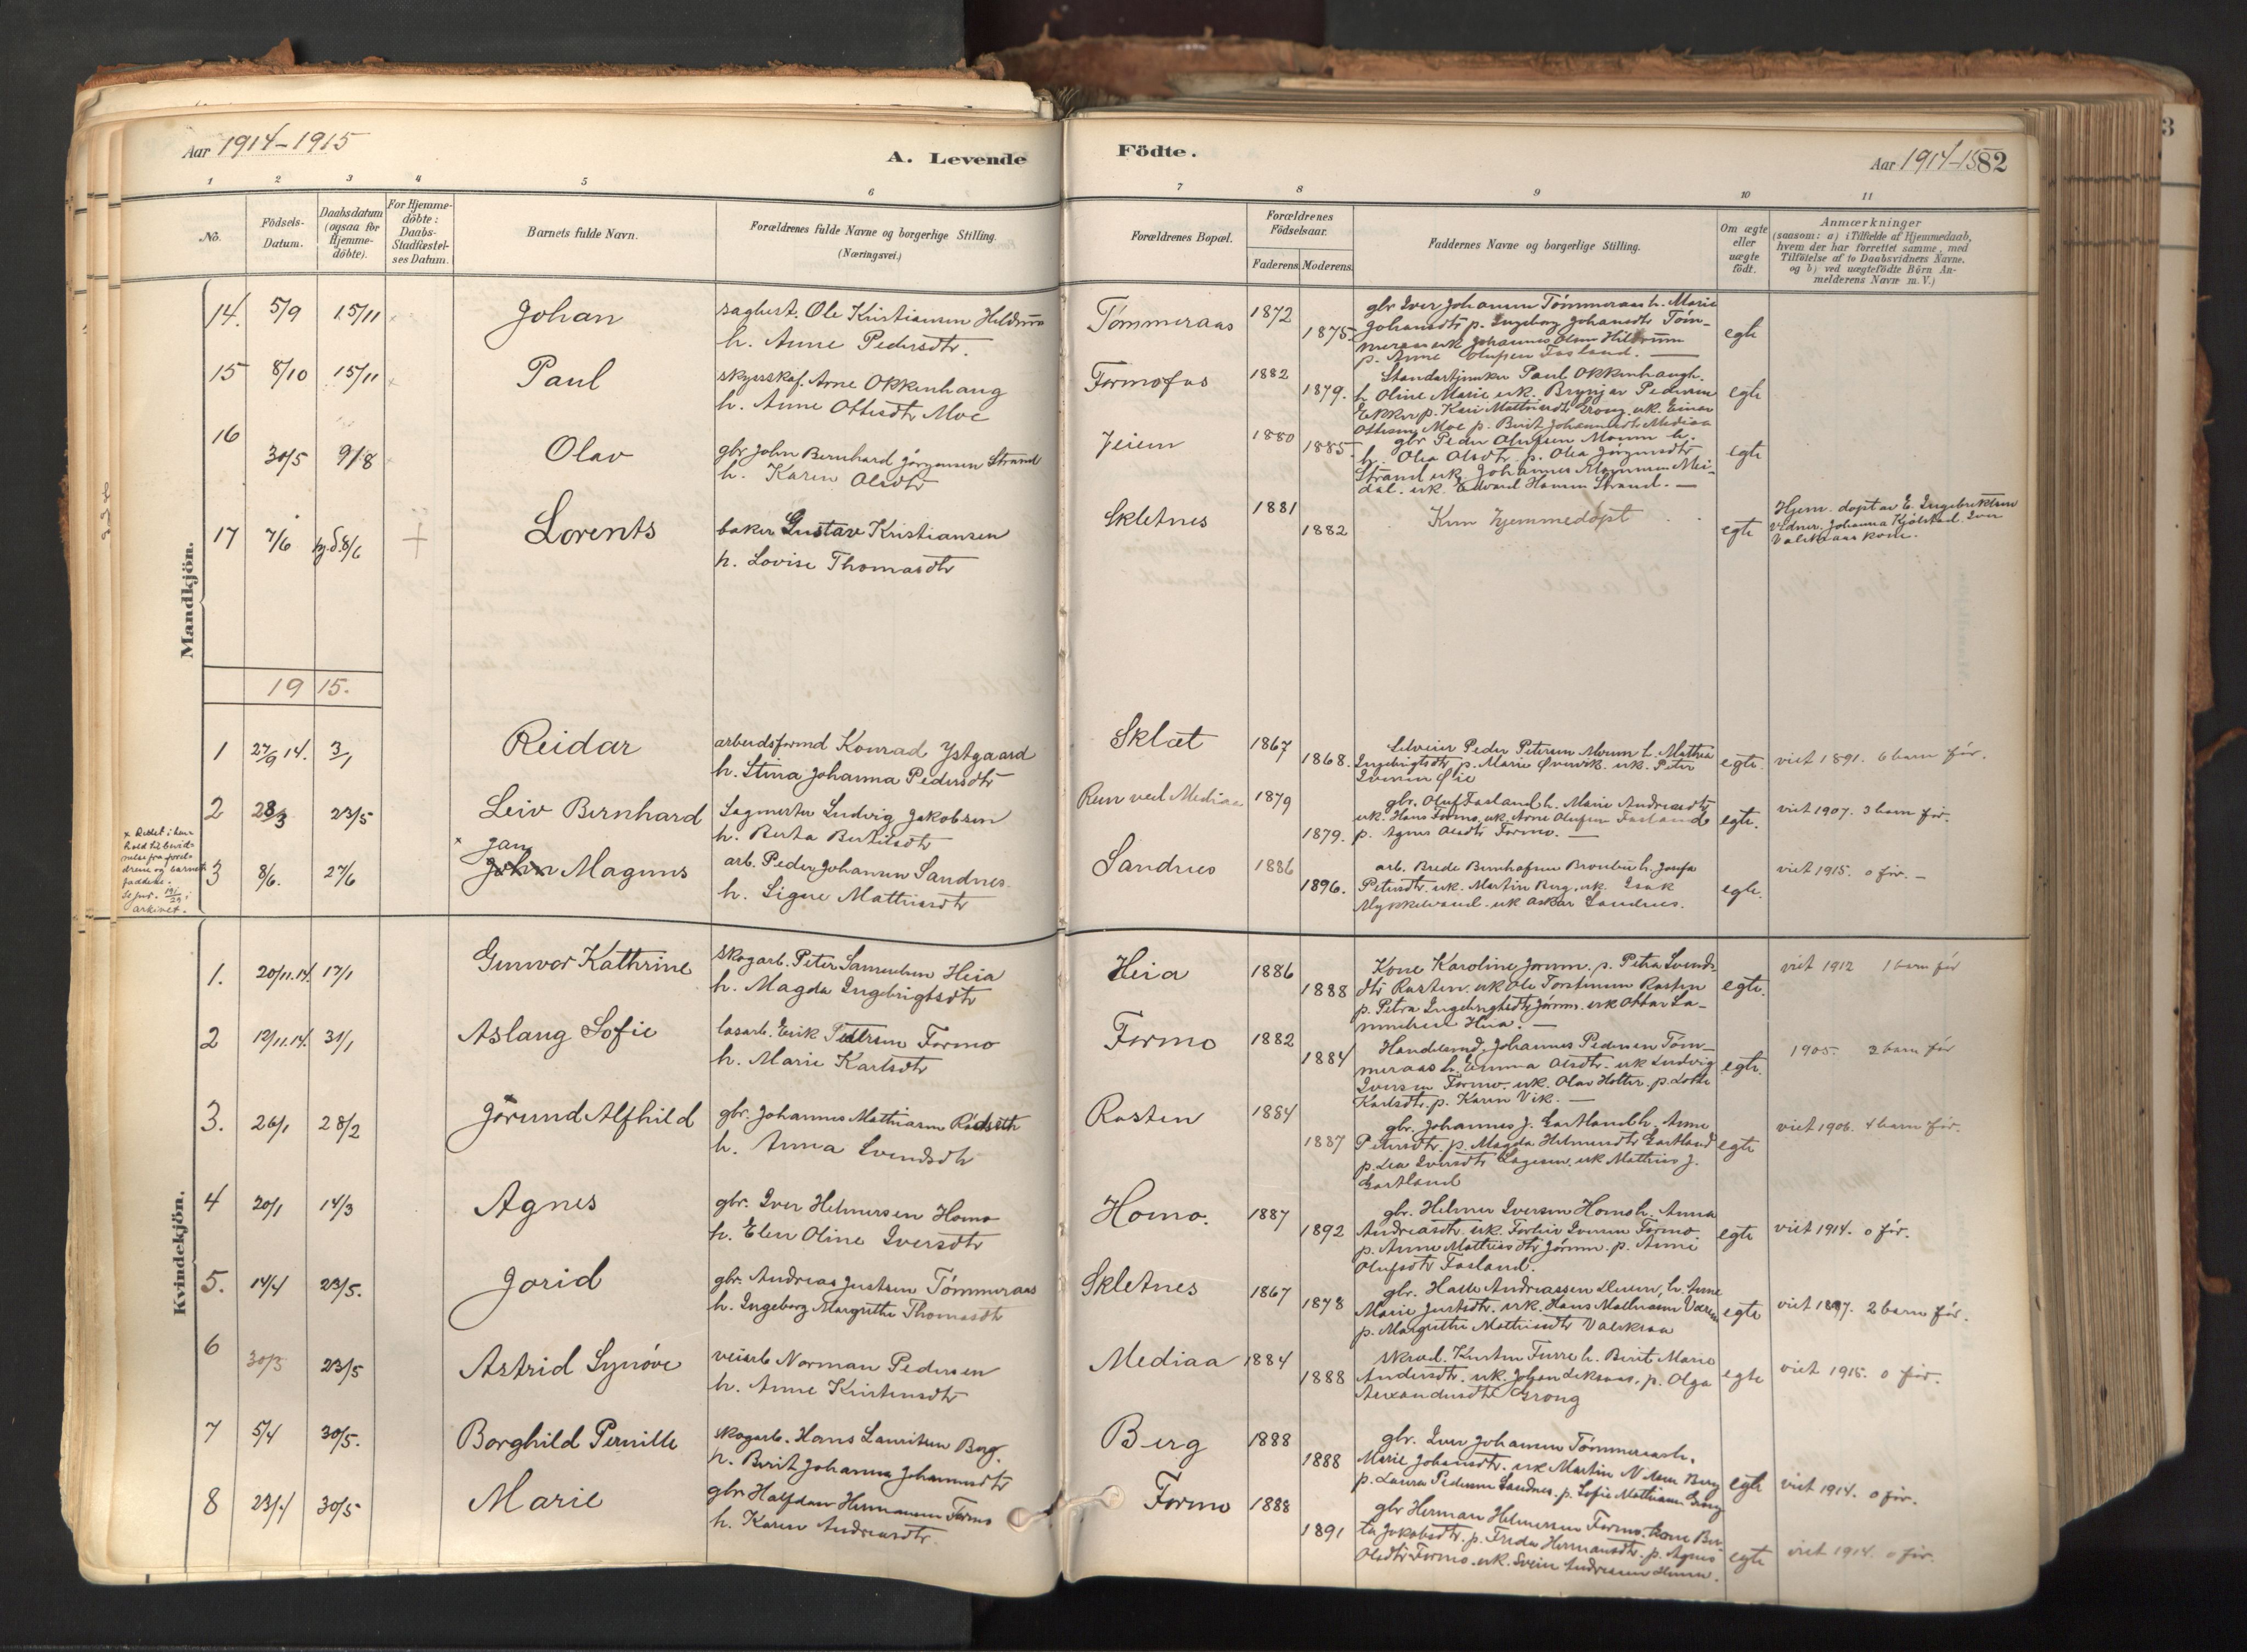 Aar 1914-1915
A. Levende
Födte.
Aar 1914-15
82
3
1
2
3
4
5
6
7
8
9
10
11
No.
Födsels-
Datum.
Daabsdatum
(ogsaa for
Hjemme-
döbte).
For Hjemme-
döbte:
Daabs-
Stadfæstel-
ses Datum.
Barnets fulde Navn.
Forældrenes fulde Navne og borgerlige Stilling.
(Næringsvei.)
Forældrenes Bopæl.
Forældrenes
Födselsaar.
Faderens.
Moderens.
Faddernes Navne og borgerlige Stilling.
Om ægte
eller
uægte
födt.
Anmærkninger
(saasom: a) i Tilfælde af Hjemmedaab,
hvem der har forrettet samme, med
Tilföielse af to Daabsvidners Navne.
og b) ved uægtefödte Börn An-
melderens Navn m. V.)
Mandkjön.
14. 5/9 15/11 Johan
Ole Kristiansen
h. Anne Pedersdtr.
Tømmeraas 1872
1875.
gbr Iver Johansen Tømmeraas h. Marie
Johansdtr p. Ingeborg Johansdtr Tøm-
meraas uk Johannes Olsen
p. Anne Olufsen Fasland. —
egte
15 8/10 15/11 Paul
Arne Okkenhaug
h. Anne Ottesdtr Moe
Formofos 1882
1879.
Paul Okkenhaugh.
h Oline Marie uk. Brynjar Pedersen
Ekker p. Kari Mathisdtr Grong. uk. Einar
Ottesen Moe p. Berit Johannesdtr Mediaa
egte
16 30/5 9/8 Olav
gbr John Bernhard Jørgensen Strand
h. Karen Olsdtr
Veiem 1880
1885.
gbr Peder Olufsen h.
h. Olea Olsdtr. p. Olea Jørgensdtr
Strand uk Johannes
dal. uk. Edvard Hansen Strand. —
egte
17 7/6 hj.d. 8/6 Lorents
baker Gustav Kristiansen
h. Lovise Thomasdtr
Skletnes 1881
1882
Kun hjemmedøpt
egte
Hjem. døpt av E. Ingebriktsen
Vidner. Johanna Kjølstad. Iver
kone.
1915.
1 27/9 14. 3/1 Reidar
arbeidsformd Konrad Ystgaard
h. Stina Johanna Pedersdtr
Sklet 1867
1868.
Peder Petersen h. Mathea
Ingebrigtsdtr p. Marie uk. Peter
Iversen
egte.
viet 1891. 6 barn før.
2 28/3 23/5 Leiv Bernhard
Sagmester Ludvig Jakobsen
h. Berta Bertilsdtr
Rein ved Mediaa 1879
1879.
gbr. Oluf Fasland h. Marie Andreasdtr
uk. Hans Formo, uk. Arne Olufsen Fasland
p. Agnes Olsdtr Formo. —
egte.
viet 1907. 3 barn før.
x Rettet i hen-
hold til bevid-
nelse fra forel-
drene og barnets
faddere.
arkivet.
x Jan
3 8/6. 27/6 John Magnus
arb. Peder Johansen Sandnes.
h. Signe Mathisdtr
Sandnes 1886
1896.
arb. Brede h. Josefa
Petersdtr. uk. Martin Berg. uk. Isak
uk Oskar Sandnes.
egte.
viet 1915. 0 før. —
Kvindekjön.
1. 20/11.14. 17/1 Gunvor Kathrine
skogarb. Peter Samuelsen Heia
h. Magda Ingebrigtsdtr
Heia 1886
1888
Kone Karoline Jørum. p. Petra Svends-
dtr Rosten. uk Ole Torstensen Rosten
p. Petra Ingebrigtsdtr Jørum. uk Ottar Sa-
muelsen Heia. —
egte.
viet 1912 1 barn før
2 12/11.14. 31/1 Aslaug Sofie
løsarb. Erik Petersen Formo
h. Marie Karlsdtr
Formo 1882
1884
Handelsmd. Johannes Pedersen Tøm-
meraas h. Emma Olsdtr. uk Ludvig
Iversen Formo. uk. Olav Holter. p. Lotte
Karlsdtr. p. Karen Vik. —
egte.
1905. 2 barn før
3. 26/1 28/2 Jørund Alfhild
gbr. Johannes Mathiasen
h. Anna Svendsdtr
Rosten 1884
1887
gbr. Johannes J. Gartland h. Anne
Petersdtr. p. Magda Helmersdtr Gartland
p. Lea Iversdtr uk Mathias J.
Gartland
egte
viet 1906. 4 barn før.
4 20/1 14/3 Agnes
gbr. Iver Helmersen Homo
h. Elen Oline Iversdtr
Homo. 1887
1892
gbr. Helmer Iversen Homo h. Anna
Andreasdtr. uk. Iversen Formo.
p. Anne Mathisdtr Jørum. p. Anne
Olufsdtr Fasland.
egte
viet 1914. 0 før.
5. 14/4 23/5. Jorid
gbr. Andreas Justsen Tømmeraas
h. Ingeborg Margrethe Thomasdtr
Skletnes 1867
1878
gbr. Andreassen h. Anne
Marie Justsdtr. uk. Hans
p. Margrethe Mathisdtr
egte
viet 1897. 2 barn før.
6 30/3 23/5 Astrid Synøve
veiarb Norman Pedersen
h. Anne Kristensdtr
Mediaa 1884
1888
Kristen Furre h. Berit Marie
Andersdtr. uk. Johan p. Olga
Grong
egte
viet 1915. 0 før.
7 5/4 30/5. Borghild Pernille
skogarb. Hans Lauritsen Berg.
h. Berit Johanna Johannesdtr
Berg 1888
1888
gbr. Iver Johansen Tømmeraas h.
Marie Johansdtr. uk Martin Nilsen Berg
p. Laura Pedersen Sandnes. p. Sofie Mathiasen Grong
egte
viet 1914. 0 før.
8 23/4 30/5 Marie
gbr. Halfdan Hermansen Formo
h. Karen Andreasdtr.
Formo 1888
1891
gbr Herman Helmersen Formo. kone Ber-
ta Jakobsdtr. p. Frida Hermansdtr. p. Agnes
Olsdtr Formo. uk. Svein Andreassen
egte
viet 1914. 0 før.